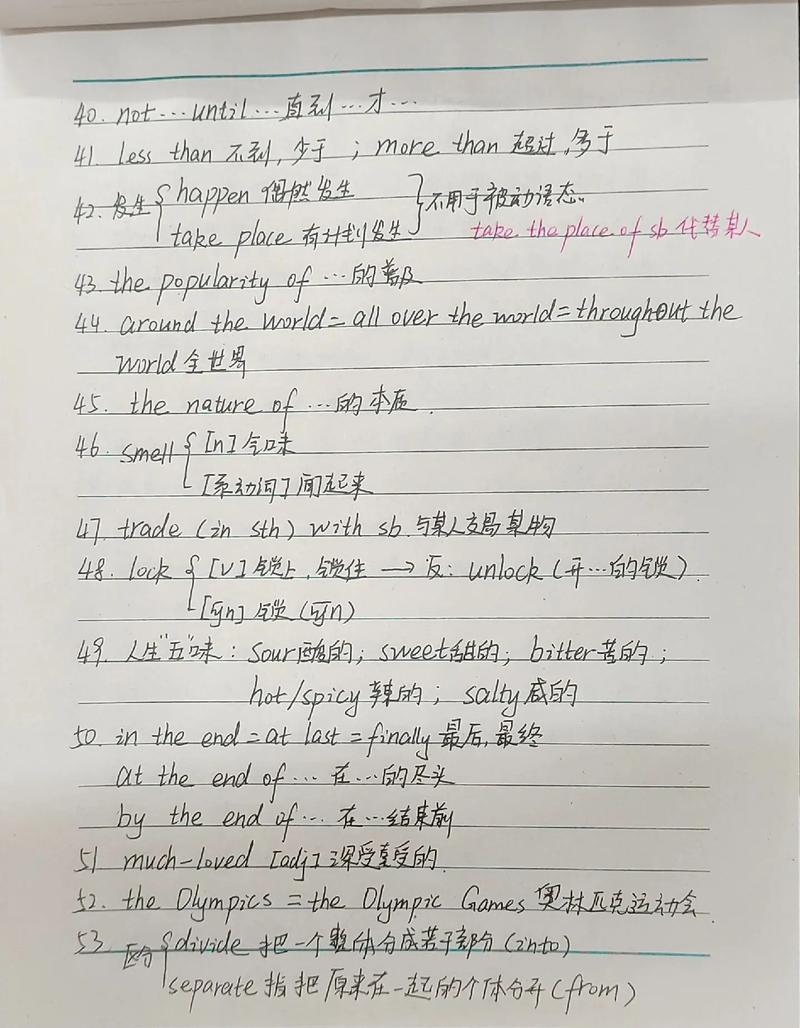 40. not…until…直到…才…
41. less than 不到,少于 ; more than 超过,多于
42. 发生 { happen 偶然发生
take place 有计划发生 } 不用于被动语态。
take the place of sb 代替某人
43. the popularity of …的普及
44. around the world = all over the world = throughout the
world 全世界
45. the nature of …的本质
46. smell { [n] 气味
[系动词] 闻起来
47. trade (in sth) with sb 与某人交易某物
48. lock { [v] 锁上,锁住 → 反: unlock (开…的锁)
[可n] 锁 (可n)
49. 人生"五"味: sour酸的; sweet甜的; bitter苦的;
hot/spicy 辣的; salty 咸的
50. in the end = at last = finally 最后,最终
at the end of … 在…的尽头
by the end of … 在…结束前
51 much-loved [adj] 深受喜爱的
52. the Olympics = the Olympic Games 奥林匹克运动会
53. 区分 { divide 把一个整体分成若干部分 (into)
separate 指把原来在一起的个体分开 (from)